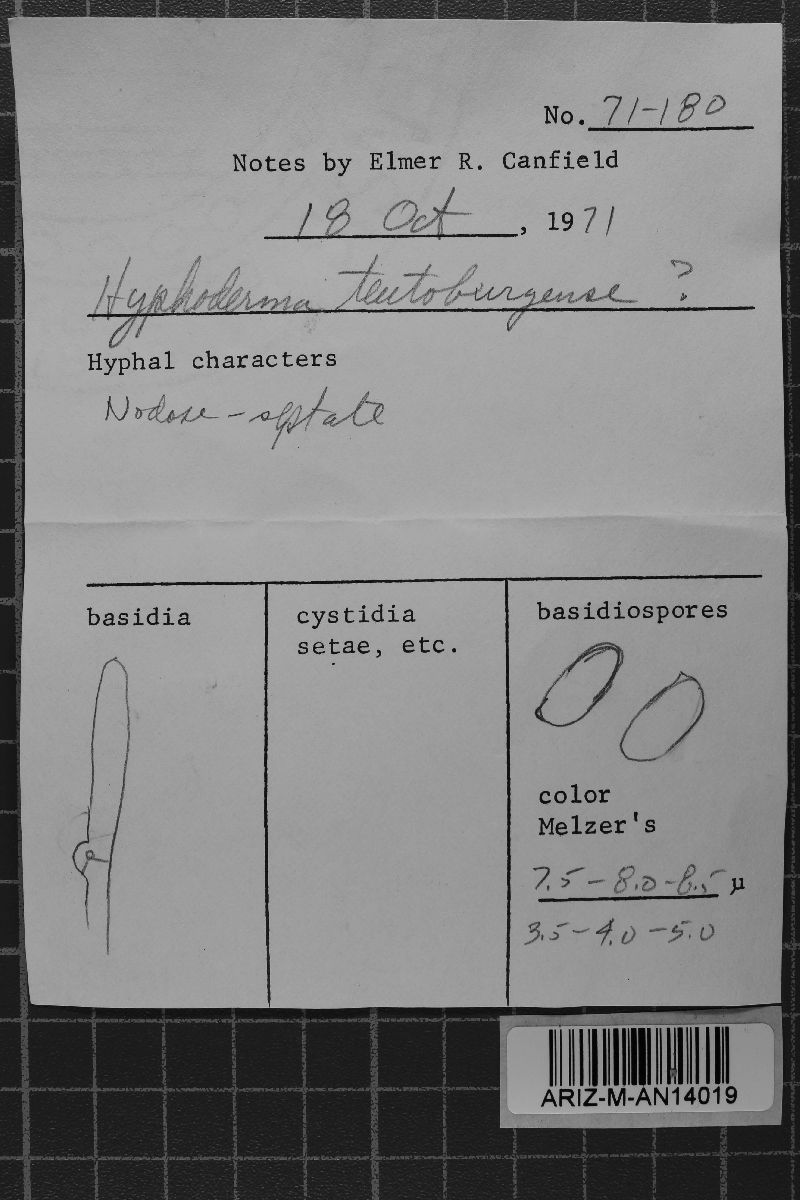 No. 71-180
Notes by Elmer R. Canfield
18 Oct, 1971
Hyphoderma teutoburgense ?
Hyphal characters
Nodose-septate
basidia
cystidia
setae, etc.
basidiospores
color
Melzer's
7.5-8.0-8.5 µ
3.5-4.0-5.0
ARIZ-M-AN14019